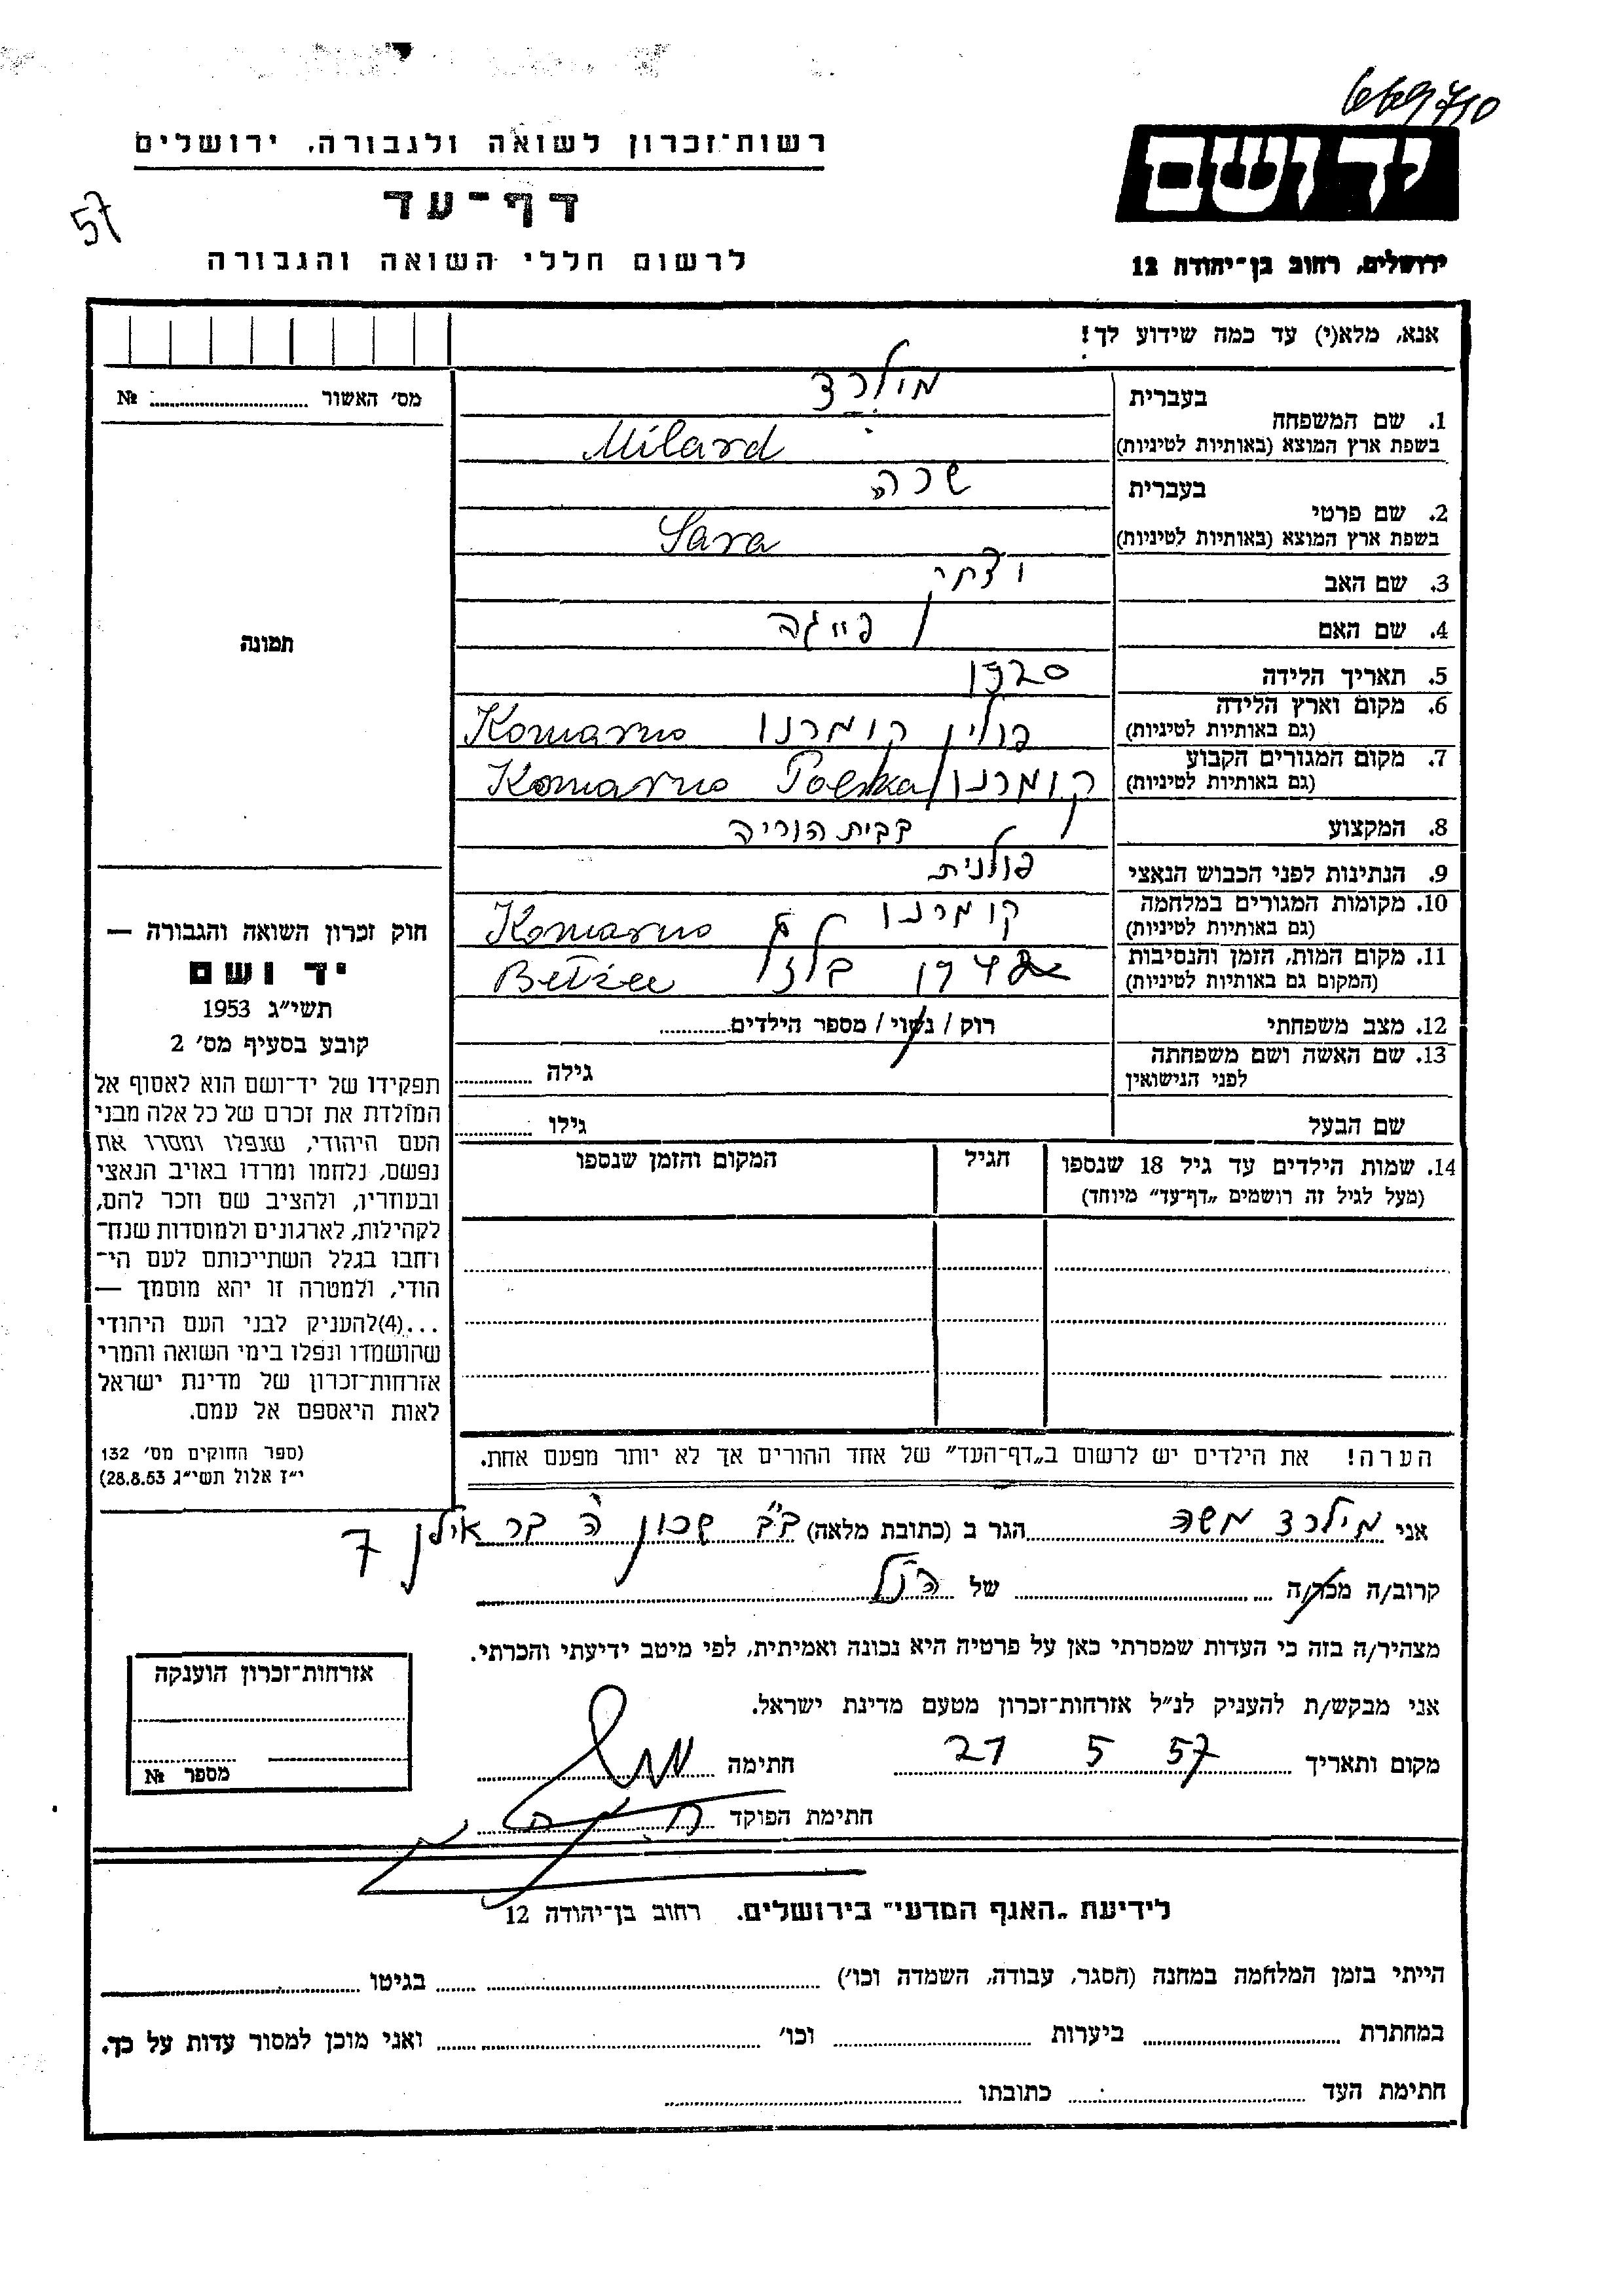 6669710
רשות־זכרון לשואה ולגבורה, ירושלים
יד ושם
דף־עד
57
לרשום חללי השואה והגבורה
ירושלים, רחוב בן־יהודה 12
אנא, מלא(י) עד כמה שידוע לך!
מס׳ האשור № 
בעברית מילרד
1. שם המשפחה
בשפת ארץ המוצא (באותיות לטיניות) Milard
בעברית שרה
2. שם פרטי
בשפת ארץ המוצא (באותיות לטיניות) Sara
3. שם האב
4. שם האם פייגה
5. תאריך הלידה 1920
6. מקום וארץ הלידה (גם באותיות לטיניות) פולין קומרנו Komarno
7. מקום המגורים הקבוע (גם באותיות לטיניות) קומרנו Komarno Polska
8. המקצוע בבית הוריה
9. הנתינות לפני הכבוש הנאצי פולנית
10. מקומות המגורים במלחמה (גם באותיות לטיניות) קומרנו Komarno
11. מקום המות, הזמן והנסיבות (המקום גם באותיות לטיניות) בלז Bełżec
12. מצב משפחתי רוק / נשוי / מספר הילדים
13. שם האשה ושם משפחתה לפני הנישואין גילה
שם הבעל גילו
14. שמות הילדים עד גיל 18 שנספו
(מעל לגיל זה רושמים „דף־עד״ מיוחד)
הגיל
המקום והזמן שנספו
הערה! את הילדים יש לרשום ב„דף־העד״ של אחד ההורים אך לא יותר מפעם אחת.
תמונה
חוק זכרון השואה והגבורה —
יד ושם
תשי״ג 1953
קובע בסעיף מס׳ 2
תפקידו של יד־ושם הוא לאסוף אל
המולדת את זכרם של כל אלה מבני
העם היהודי, שנפלו ומסרו את
נפשם, נלחמו ומרדו באויב הנאצי
ובעוזריו, ולהציב שם וזכר להם,
לקהילות, לארגונים ולמוסדות שנח־
רחבו בגלל השתייכותם לעם הי־
הודי, ולמטרה זו יהא מוסמך —
...(4)להעניק לבני העם היהודי
שהושמדו ונפלו בימי השואה והמרי
אזרחות־זכרון של מדינת ישראל
לאות היאספם אל עמם.
(ספר החוקים מס׳ 132
י״ז אלול תשי״ג 28.8.53)
אני מילרד משה הגר ב (כתובת מלאה) ב״ב שכון ה בר אילן 7
קרוב/ה מכר/ה של הנ״ל
מצהיר/ה בזה כי העדות שמסרתי כאן על פרטיה היא נכונה ואמיתית, לפי מיטב ידיעתי והכרתי.
אני מבקש/ת להעניק לנ״ל אזרחות־זכרון מטעם מדינת ישראל.
מקום ותאריך 21 5 57 חתימה
חתימת הפוקד
אזרחות־זכרון הוענקה
מספר №
לידיעת „האגף המדעי״ בירושלים. רחוב בן־יהודה 12
הייתי בזמן המלחמה במחנה (הסגר, עבודה, השמדה וכו׳) בגיטו
במחתרת ביערות וכו׳ ואני מוכן למסור עדות על כך.
חתימת העד כתובתו